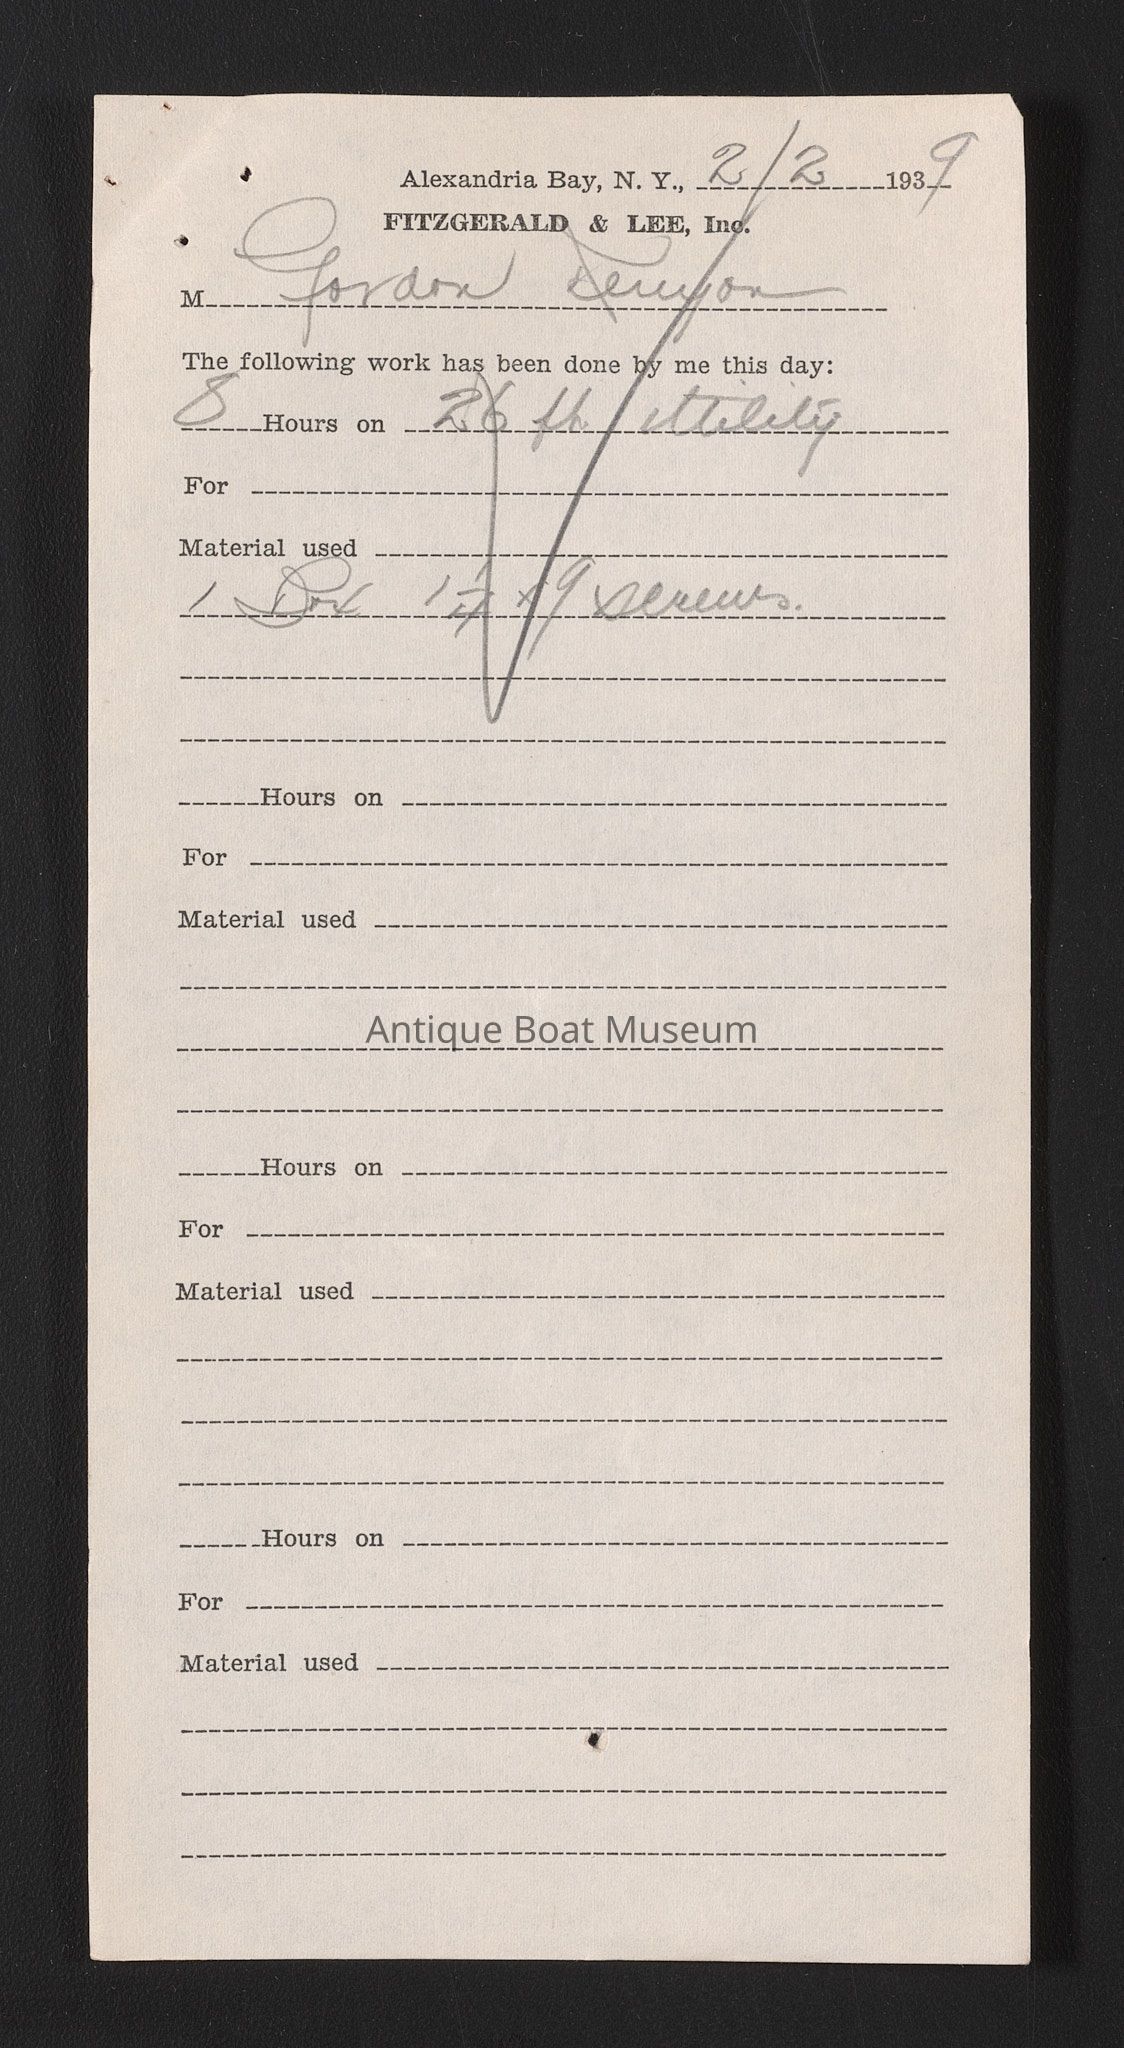 Alexandria Bay, N. Y., 2/2 1939
FITZGERALD & LEE, Inc.
M Gordon Kenyon
The following work has been done by me this day:
8 Hours on 26 ft. Utility
For
Material used
1 Box 1 1/4 x 9 screws.
Hours on
For
Material used
Antique Boat Museum
Hours on
For
Material used
Hours on
For
Material used